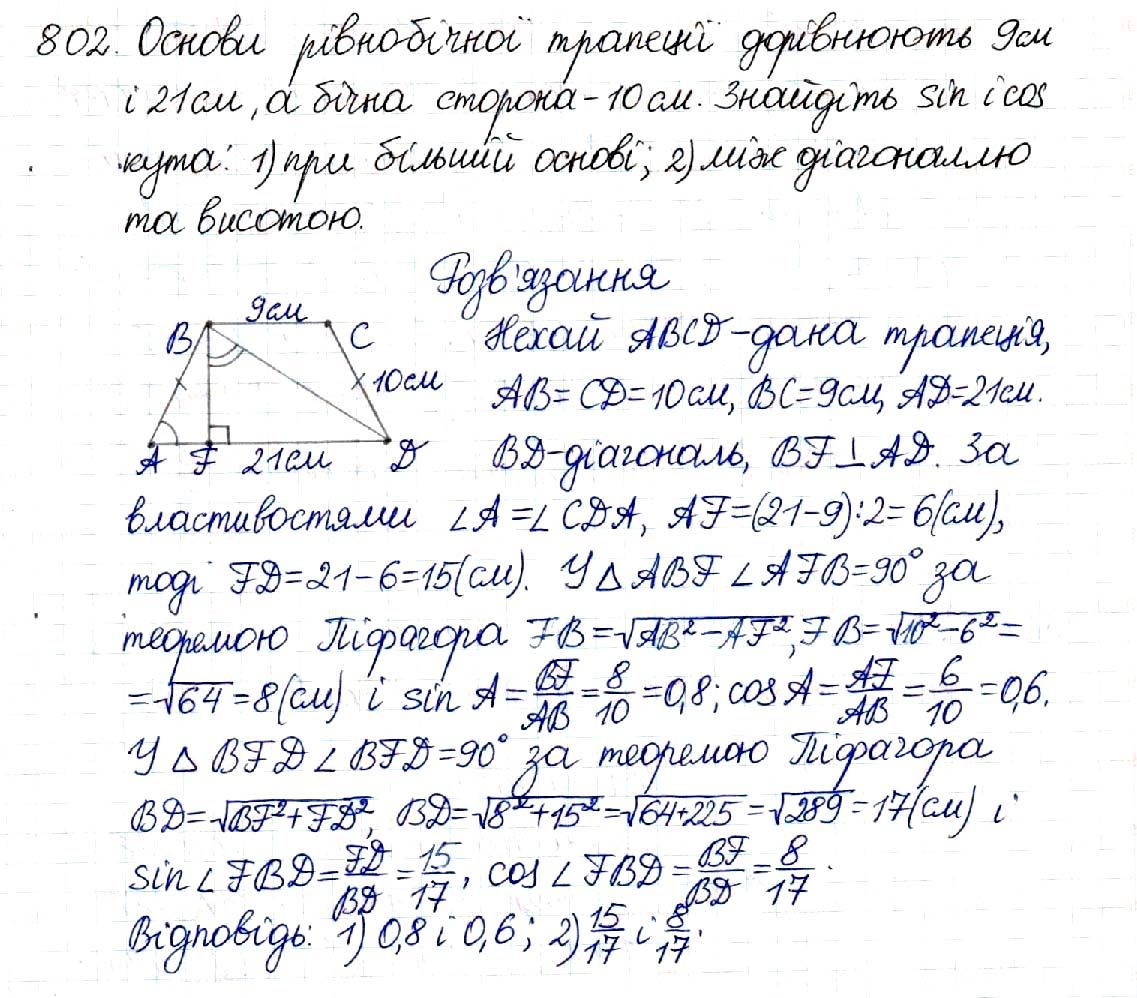 802. Основи рівнобічної трапеції дорівнюють 9см
і 21см, а бічна сторона – 10 см. Знайдіть sin і cos
кута: 1) при більшій основі; 2) між діагоналлю
та висотою.
Розв'язання
9см
B C
10см
A F 21см D
Нехай ABCD – дана трапеція,
AB = CD = 10см, BC = 9см, AD = 21см.
BD – діагональ, BF ⊥ AD. За
властивостями ∠A = ∠CDA, AF = (21–9):2 = 6(см),
тоді FD = 21–6 = 15(см). У △ABF ∠AFB = 90° за
теоремою Піфагора FB = √(AB² – AF²), FB = √(10² – 6²) =
= √64 = 8(см) і sin A = BF/AB = 8/10 = 0,8; cos A = AF/AB = 6/10 = 0,6.
У △BFD ∠BFD = 90° за теоремою Піфагора
BD = √(BF² + FD²), BD = √(8² + 15²) = √(64+225) = √289 = 17(см) і
sin∠FBD = FD/BD = 15/17, cos∠FBD = BF/BD = 8/17.
Відповідь: 1) 0,8 і 0,6; 2) 15/17 і 8/17.